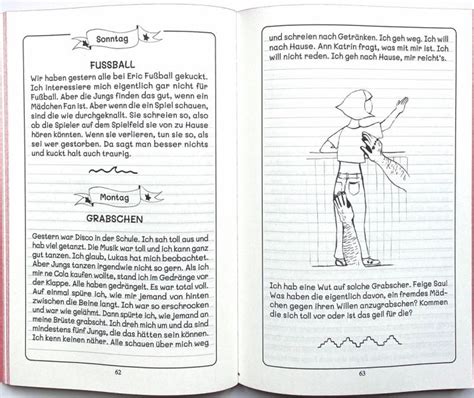 Sonntag
FUSSBALL
Wir haben gestern alle bei Eric Fußball gekuckt.
Ich interessiere mich eigentlich gar nicht für
Fußball. Aber die Jungs finden das gut, wenn ein
Mädchen Fan ist. Aber wenn die ein Spiel schauen,
sind die wie durchgeknallt. Sie schreien so, also
ob die Spieler auf dem Spielfeld sie von zu Hause
hören könnten. Wenn sie verlieren, tun sie so, als
sei wer gestorben. Da sagt man besser nichts
und kuckt halt auch traurig.
Montag
GRABSCHEN
Gestern war Disco in der Schule. Ich sah toll aus und
hab viel getanzt. Die Musik war toll und ich kann gut
tanzen. Ich glaub, Lukas hat mich beobachtet.
Aber Jungs tanzen irgendwie nicht so gern. Als ich
mir ne Cola kaufen wollte, stand ich im Gedränge vor
der Klappe. Alle haben gedrängelt. Es war total voll.
Auf einmal spüre ich, wie mir jemand von hinten
zwischen die Beine langt. Ich war so erschrocken
und war wie gelähmt. Dann spürte ich, wie jemand an
meine Brüste grabscht. Ich dreh mich um und da sind
mindestens fünf Jungs, die das hätten sein können.
Ich kenn keinen näher. Alle schauen über mich weg
62
und schreien nach Getränken. Ich geh weg. Ich will
nach Hause. Ann Katrin fragt, was mit mir ist. Ich
will nicht reden. Ich geh nach Hause, mir reicht's.
Ich hab eine Wut auf solche Grabscher. Feige Sau!
Was haben die eigentlich davon, ein fremdes Mäd-
chen gegen ihren Willen anzugrabschen? Kommen
die sich toll vor oder ist das geil für die?
63